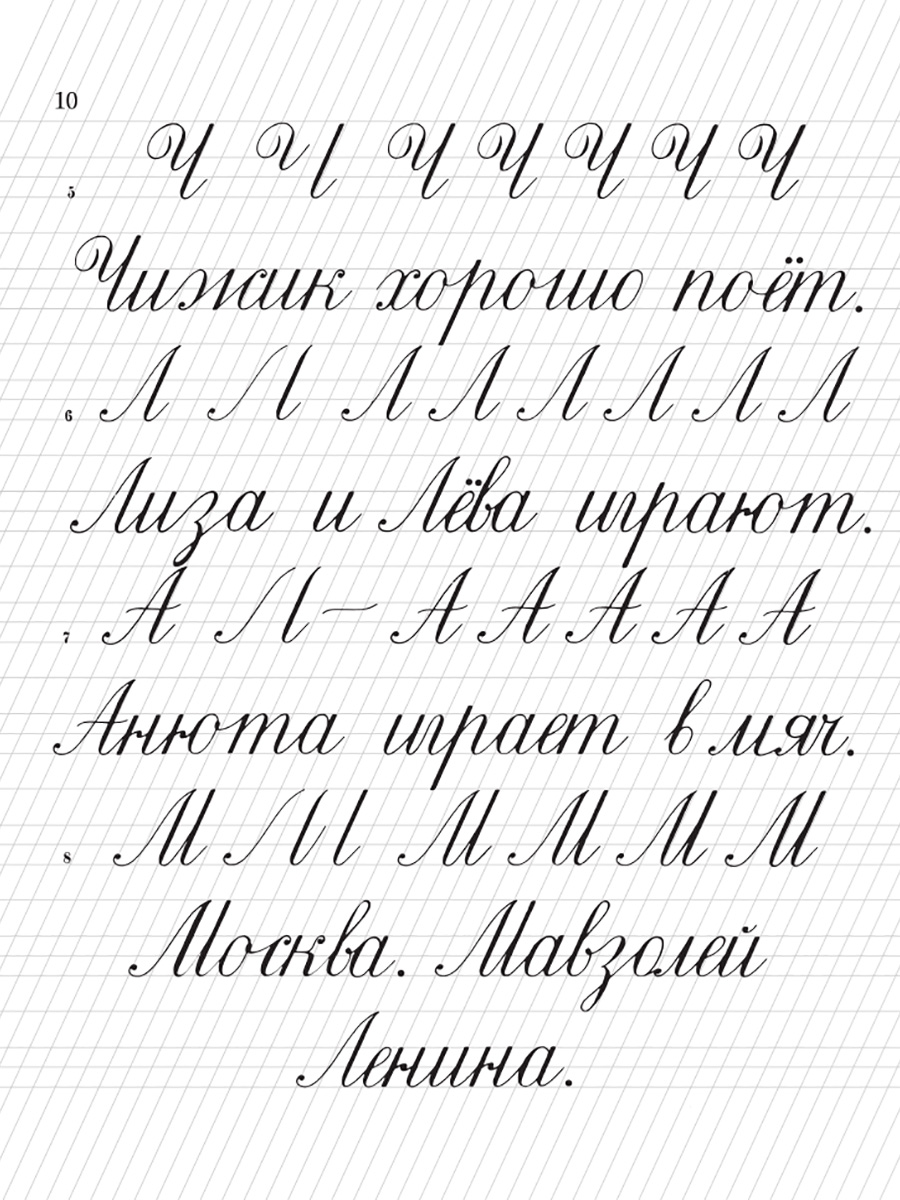 10
5 Ч Ч Ч Ч Ч Ч Ч
Чижик хорошо поёт.
6 Л Л Л Л Л Л Л Л
Лиза и Лёва играют.
7 А Л — А А А А А
Анюта играет в мяч.
8 М Л I М М М М
Москва. Мавзолей
Ленина.